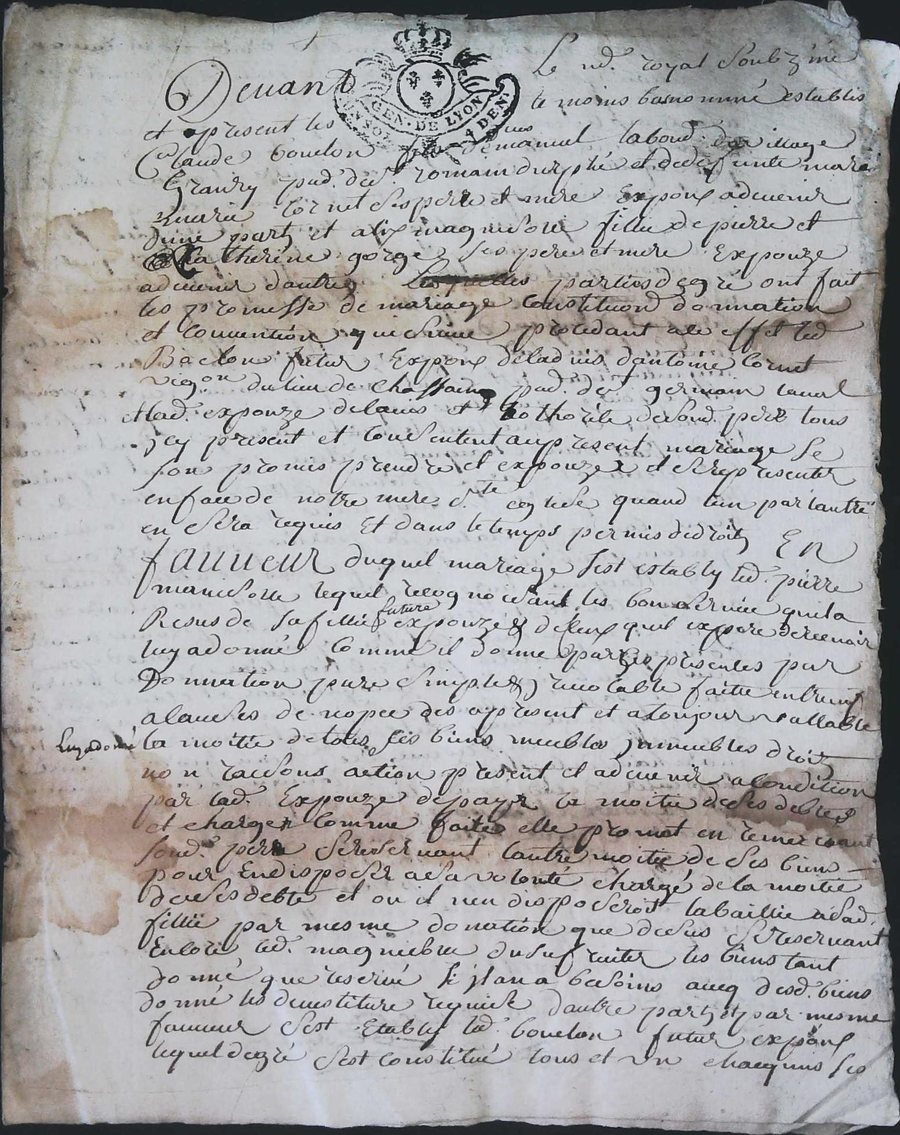 GEN. DE LYON
4 DEN.
Devant Le no. royal Soubz.né
te moins bas nommé establis
et present les
Claude bouelon demanuel laboud. du village
pnd. de romain durphé et de deffunte marie
cornet ses pere et mere Expoux advenir
d'une part et alix magniolle fille de pierre et
Catherine gorge ses pere et mere Expouze
advenir d'autre parties de gré ont fait
les promesse de mariage Constitution donnation
et convention que s'ensuit procedant a le effet led.
futur Expoux de ladvis d'antoine Cornet
vigon du lieu de Chassaing pnd. de germain laval
et lad. expouze de lavis et authorité de son d. pere tous
jcy present et Consentent au present mariage se
son promis prendre et expouzer et se representer
en face de notre mere ste eglise quand l'un par lautre
en sera requis Et dans le temps permis de droit, En
fauveur duquel mariage s'est estably led. pierre
lequel recognoissant les bons service qu'il a
Resus de sa fillie future expouze & de ceux quil expere de recevoir
luy a donné comme il donne par ces presentes par
Donnation pure simple & jrevocable faitte entreuif
a lauses de nopce des apresent et atoujour vallable
Luy a donné
la moitié de tous ses biens meubles jmmeubles droits
nom raisons action present et advenir a condition
par lad. Expouze de payer la moitié de ses debtes
et charges comme faire elle promet en remerciant
sond. pere se reservant l'autre moitié de ses bien
pour En disposer a sa volonté chargé de la moitié
de ses debte et ou il n'en disposeroit la baillie a sad.
fillie par mesme donation que dessus se reservant
Encore led. du sufruiter les biens tant
donné que reservé si jl en a besoins avec desd. biens
donné les devestiture requise d'autre part et par mesme
fauveur s'est Etably led. bouelon futur expoux
lequel de gré s'est constitué tous et un chacquns ses